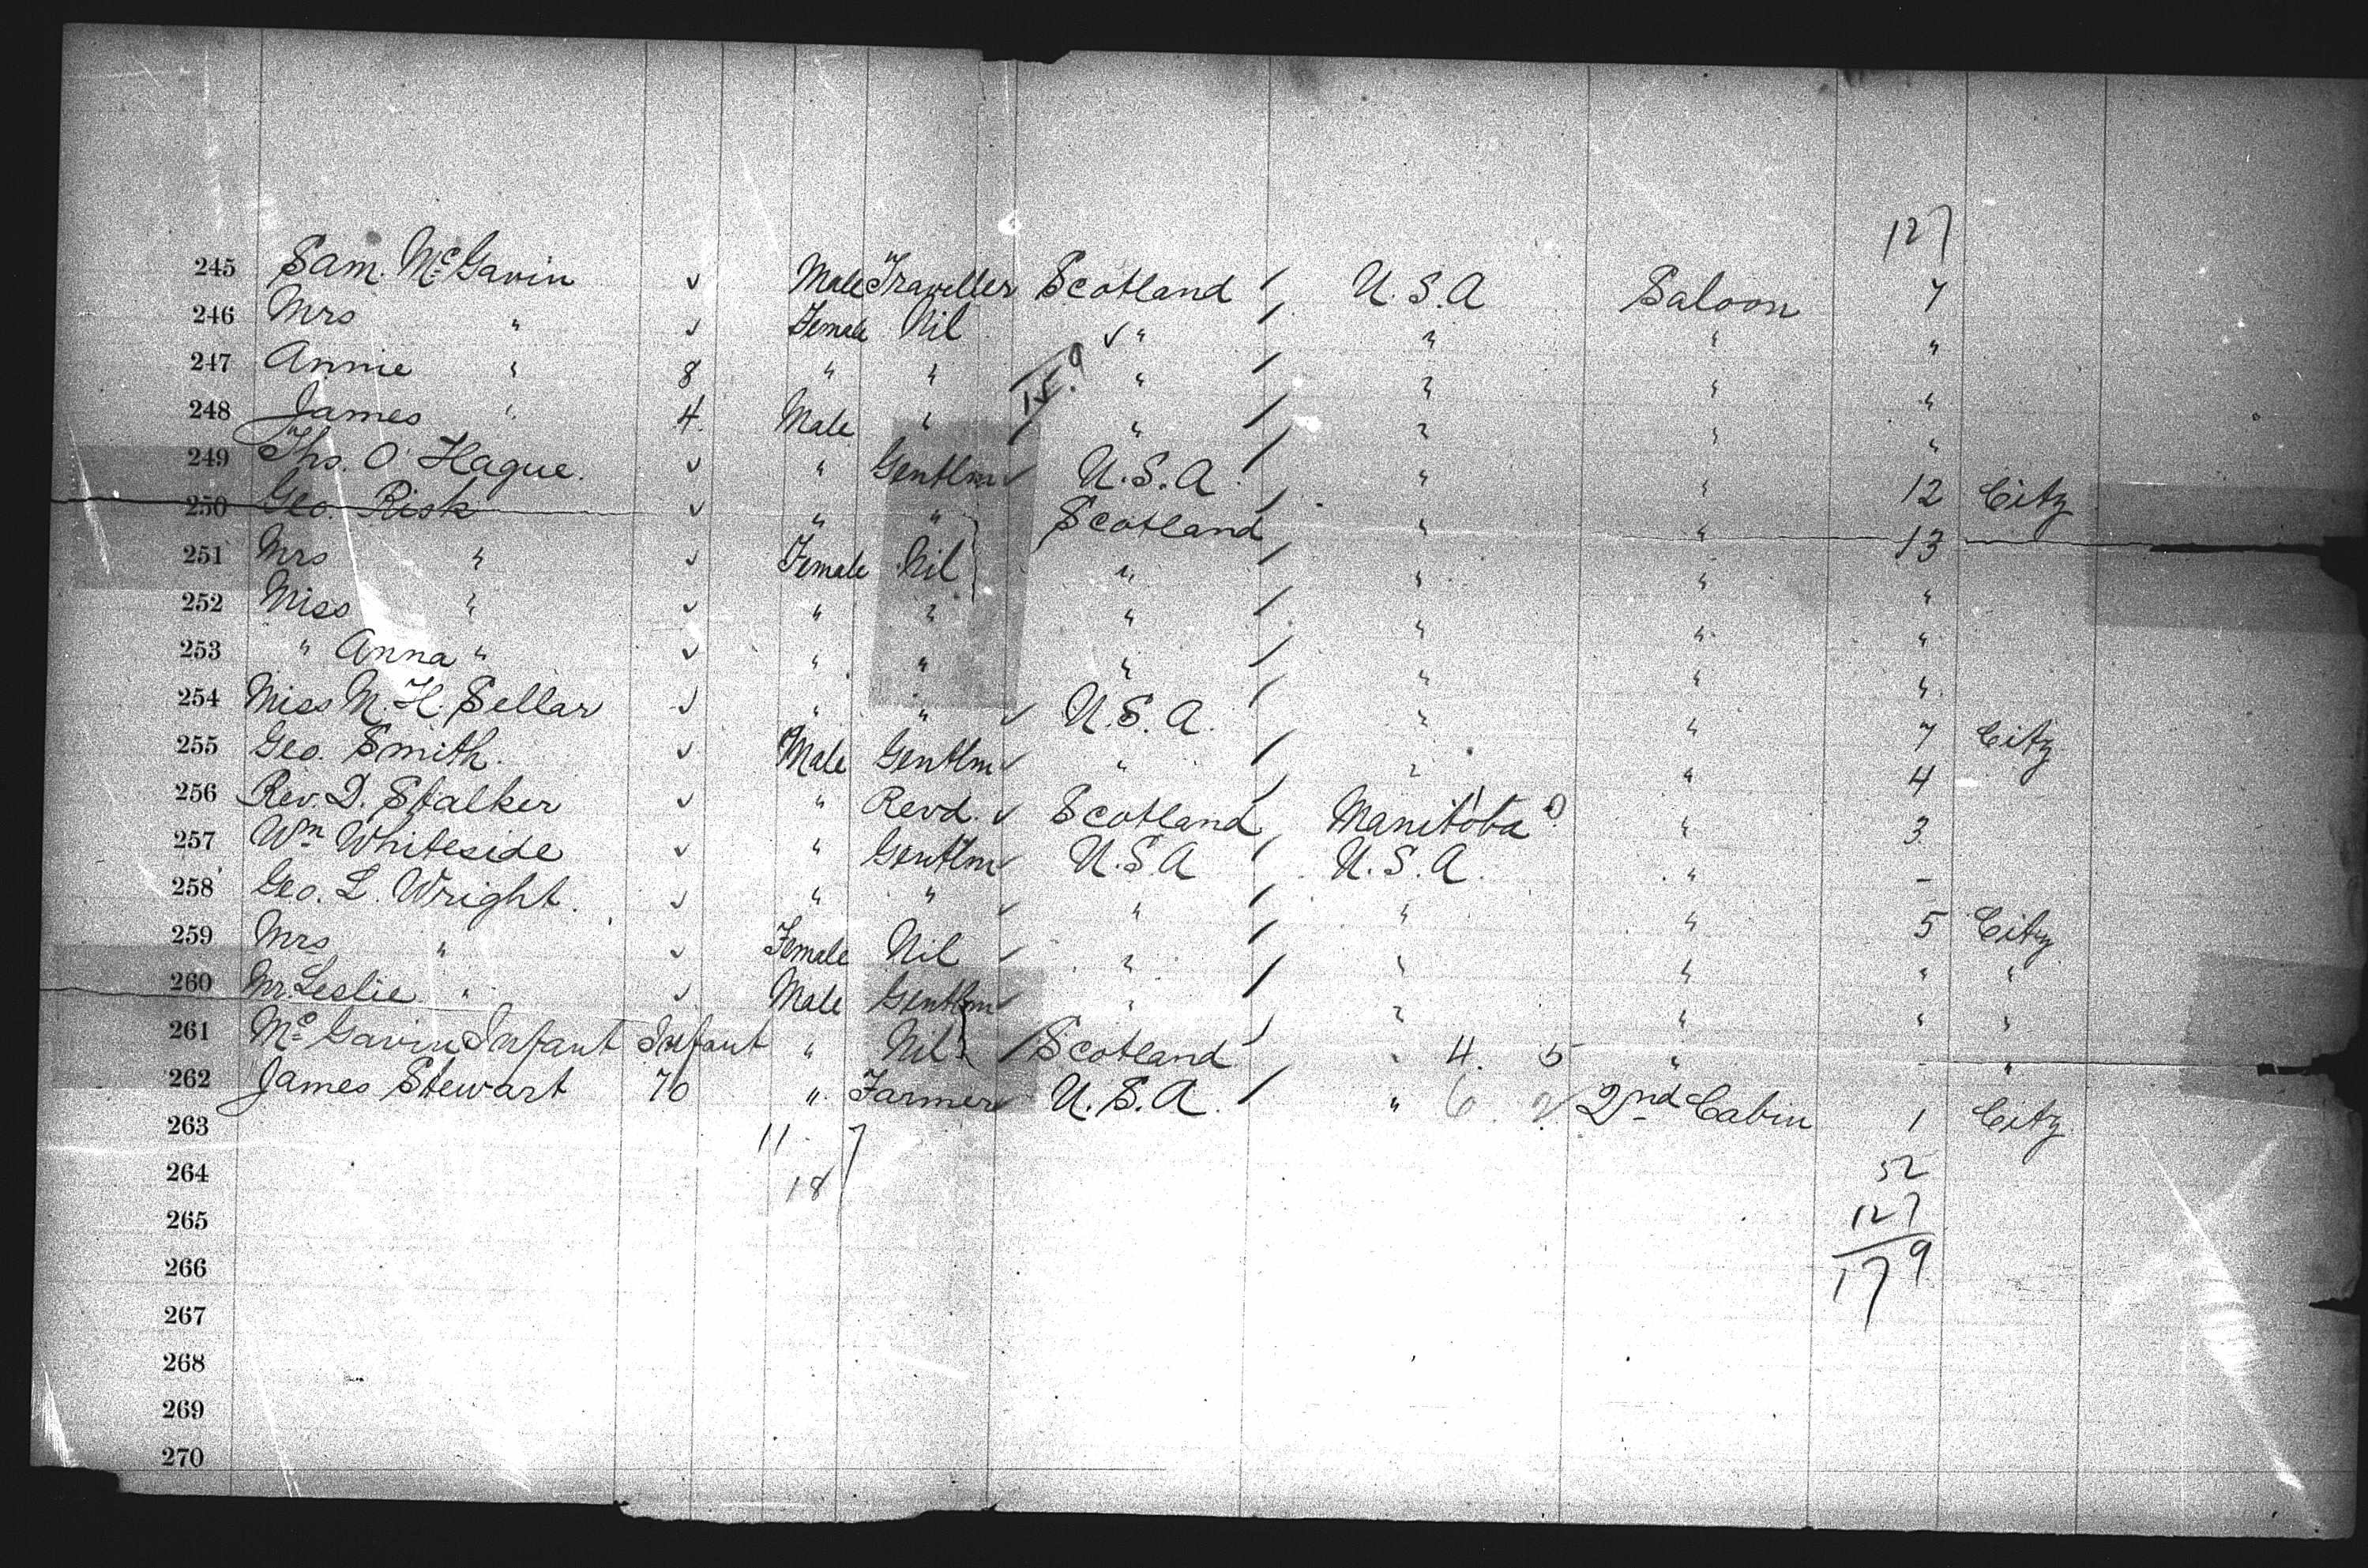 127
245 Sam. McGavin ✓ Male Traveller Scotland / U.S.A Saloon 7
246 Mrs " ✓ Female Nil ✓ " / " " "
247 Annie " 8 " " " / " " "
248 James " 4. Male " / " / " " "
249 Thos. O'Hague. ✓ " Gentlm ✓ U.S.A. / " " 12 Citz
250 Geo. Risk ✓ " " Scotland / " " 13
251 Mrs " ✓ Female Nil " / " " "
252 Miss " ✓ " " " / " " "
253 " Anna " ✓ " " " / " " "
254 Miss M. H. Sellar ✓ " " ✓ U.S.A. / " " 7 Citz
255 Geo. Smith. ✓ Male Gentlm ✓ " / " " 4
256 Rev. D. Stalker ✓ " Revd. ✓ Scotland / Manitoba " 3
257 Wm Whiteside ✓ " Gentlm ✓ U.S.A / U.S.A. " -
258 Geo. L. Wright. ✓ " " ✓ " / " " 5 Citz
259 Mrs " ✓ Female Nil ✓ " / " " " "
260 Mr. Leslie " ✓ Male Gentlm ✓ " / " " " "
261 McGavin Infant Infant " Nil / Scotland / " 4. 5 " - "
262 James Stewart 70 " Farmer ✓ U.S.A. / " 6 2nd Cabin 1 Citz
263 11 7
264 18 52
265 127
266 179
267
268
269
270